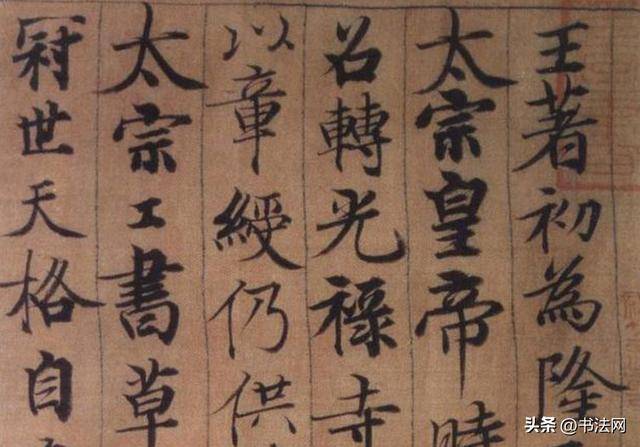 王著初為隆
太宗皇帝時
召轉光祿寺
以章綬仍供
太宗工書草
冠世天格自
头条 @书法网